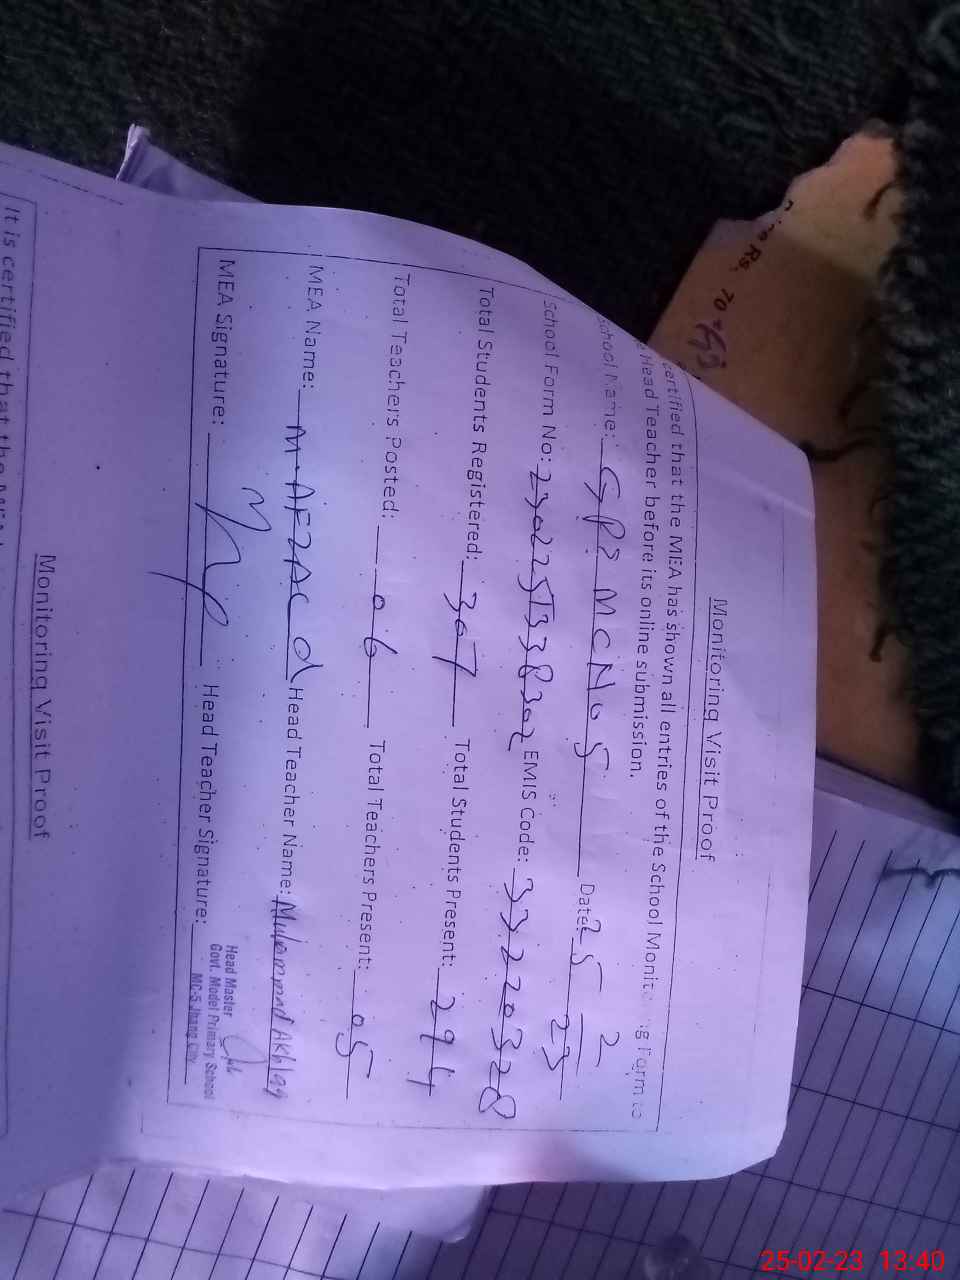 Monitoring Visit Proof
certified that the MEA has shown all entries of the School Monitoring Form to
Head Teacher before its online submission.
School Name: GPS MC No 5 Date: 25 2 23
School Form No: EMIS Code: 33220328
Total Students Registered: 307 Total Students Present: 294
Total Teachers Posted: 06 Total Teachers Present: 05
MEA Name: M. AFZAL Head Teacher Name: Muhammad Akhlaq
MEA Signature: Head Teacher Signature:
Head Master
Govt. Model Primary School
MC-5 Jhang City
Monitoring Visit Proof
It is certified that the MEA
Rs. 70
25-02-23 13:40